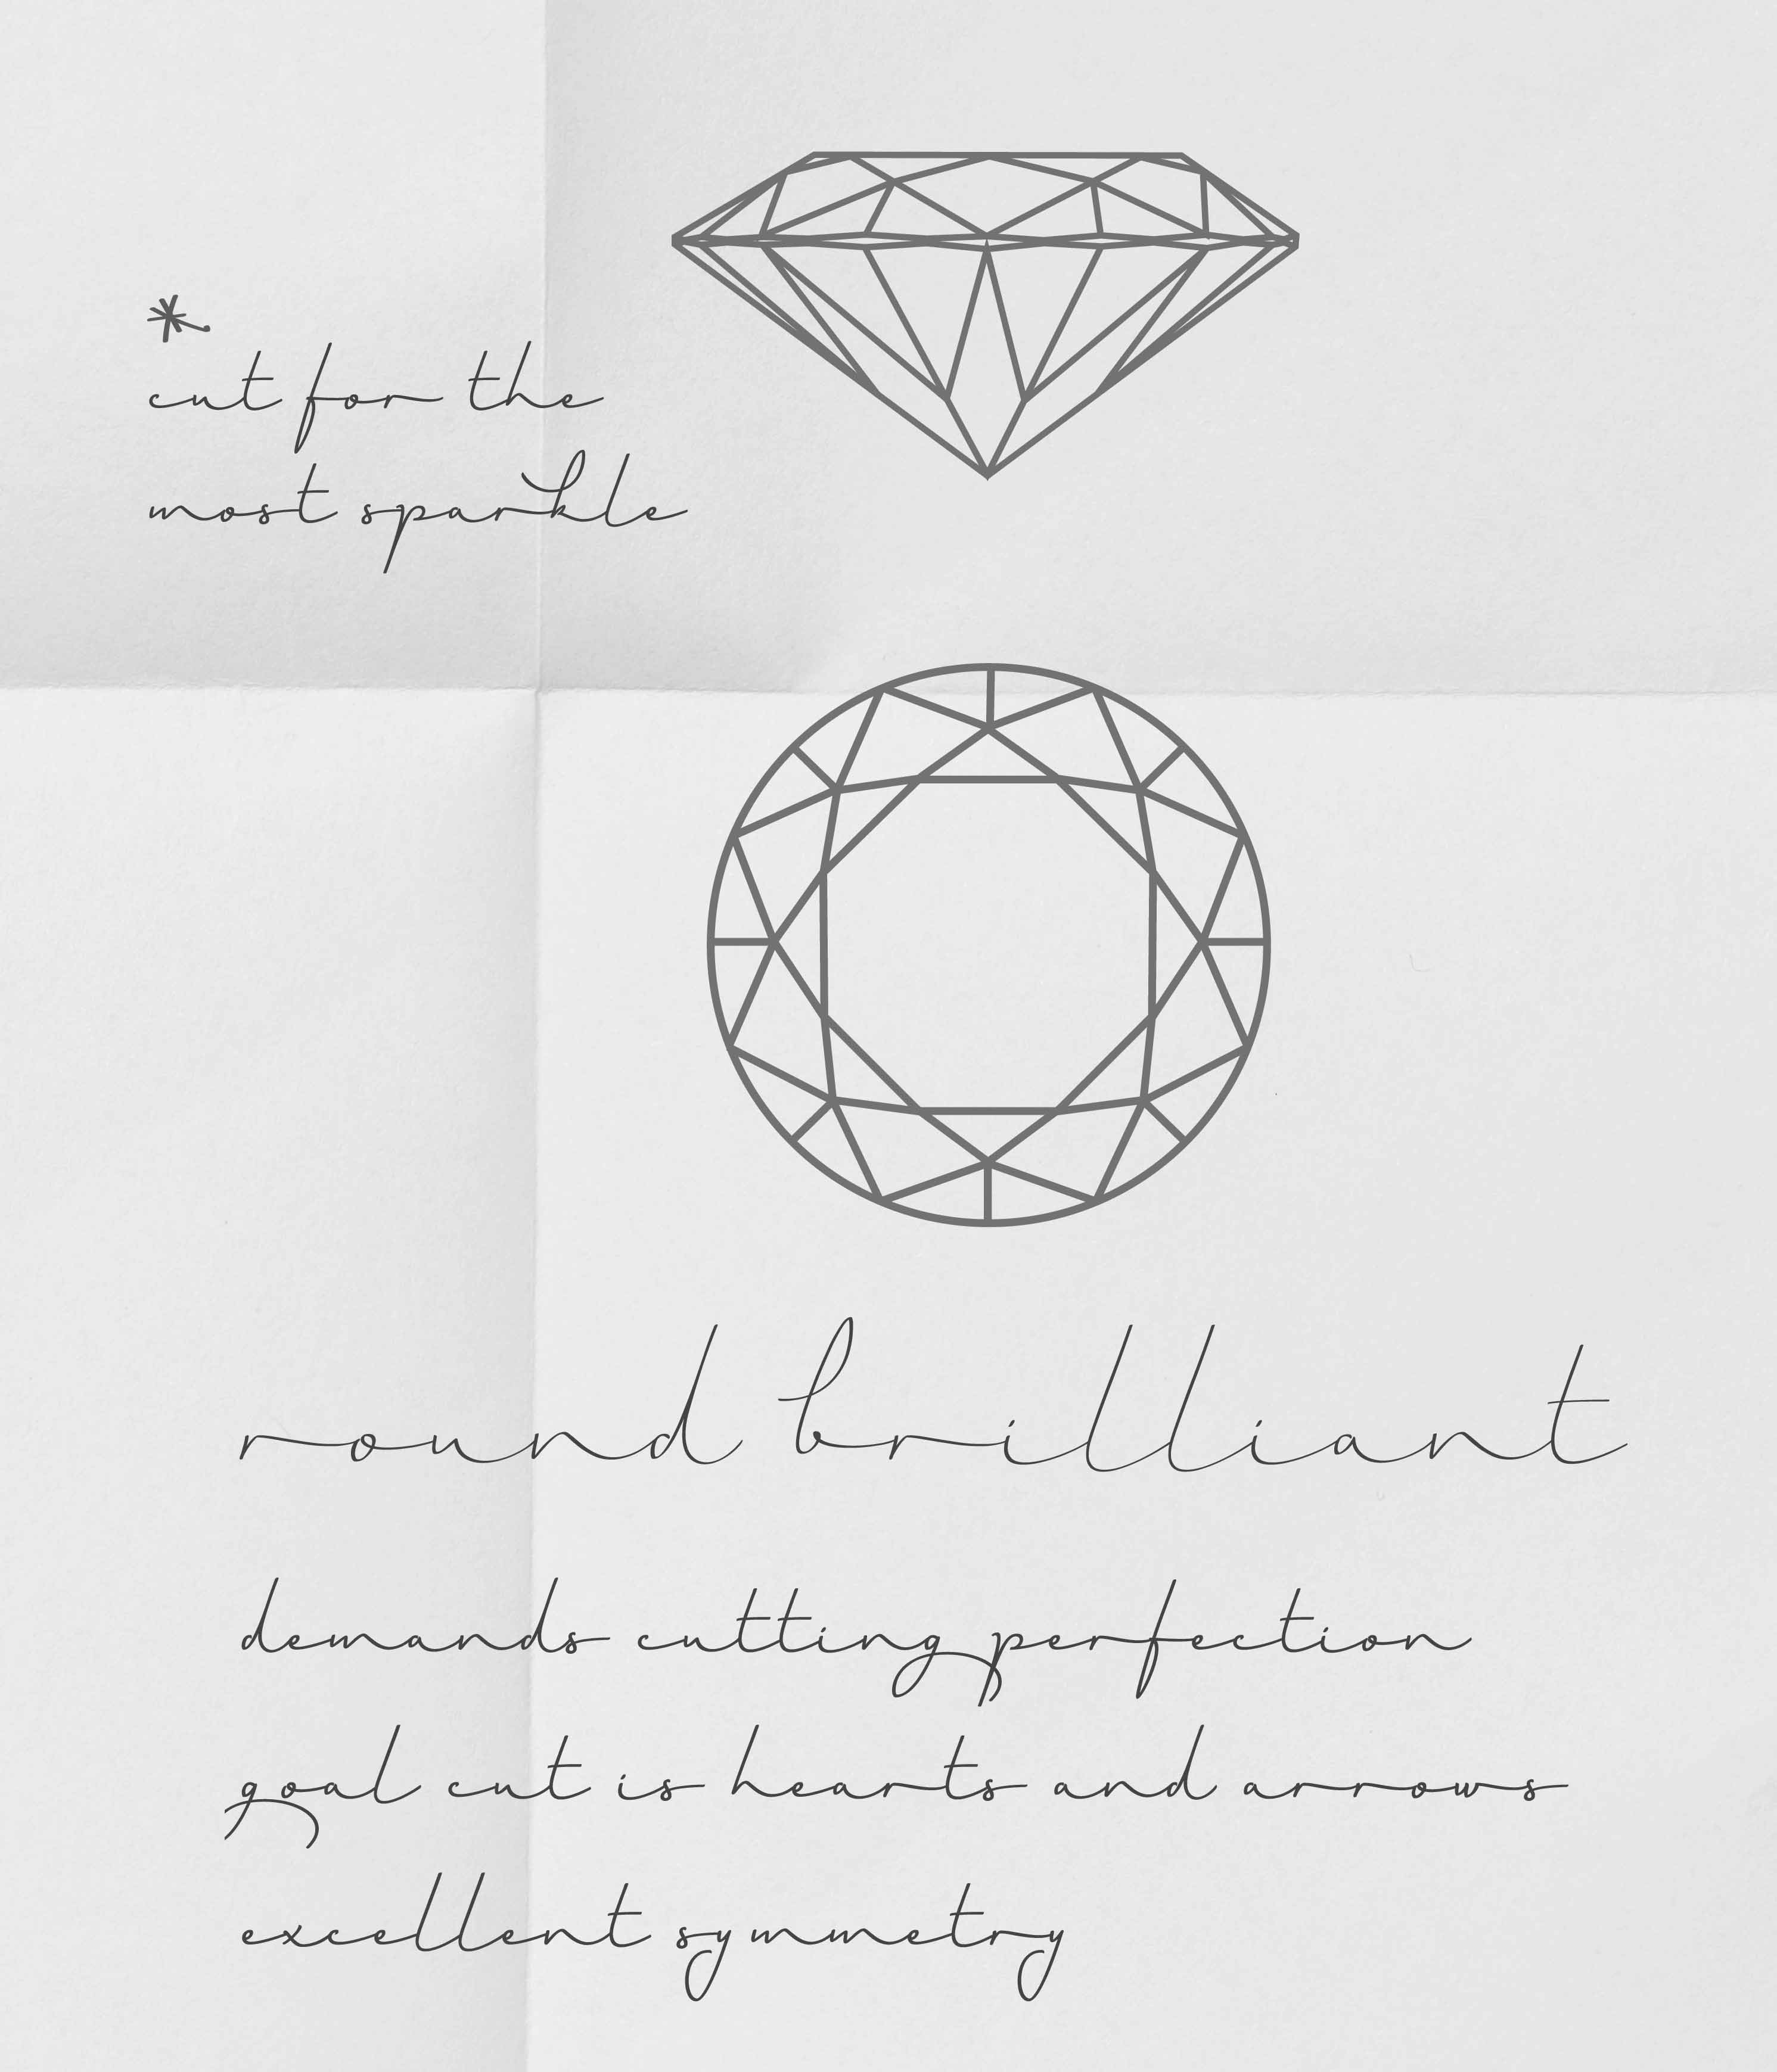 *
cut for the
most sparkle
round brilliant
demands cutting perfection
goal cut is hearts and arrows
excellent symmetry